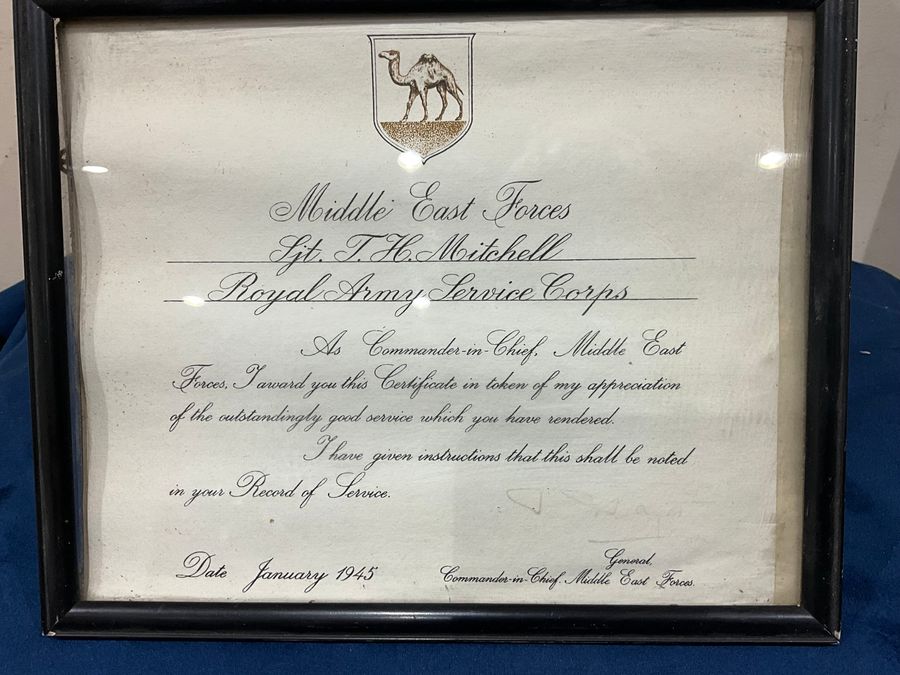 Middle East Forces
Sjt. T. H. Mitchell
Royal Army Service Corps
As Commander-in-Chief, Middle East
Forces, I award you this Certificate in token of my appreciation
of the outstandingly good service which you have rendered.
I have given instructions that this shall be noted
in your Record of Service.
Date January 1945
General,
Commander-in-Chief, Middle East Forces.